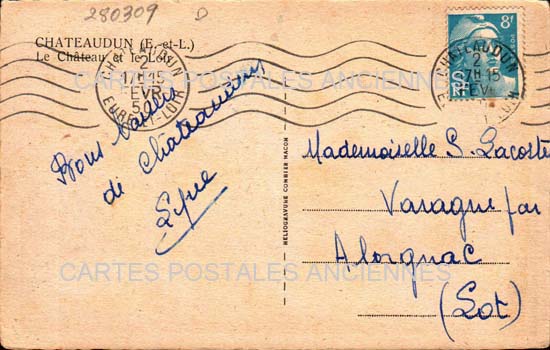 280309 D
CHATEAUDUN (E.-et-L.)
Le Château et le Loir
CHATEAUDUN
2
17H15
FEV.
50
EURE-ET-LOIR
8f
RF
CHATEAUDUN
2
17H15
FEV.
CARTES POSTALES ANCIENNES
Bons baisers
de Châteaudun
HELIOGRAVURE COMBIER MACON
Mademoiselle S. Lacoste
par
(Lot)
CARTES POSTALES ANCIENNES